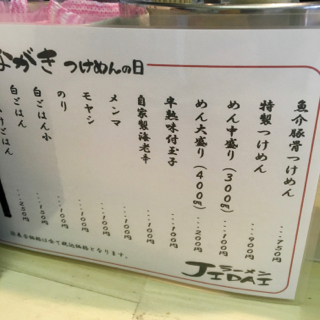 ながき つけめんの日
魚介豚骨つけめん ...750円
特製つけめん ...900円
めん中盛り(300g) ...100円
めん大盛り(400g) ...200円
半熟味付玉子 ...100円
自家製海老辛 ...100円
メンマ ...100円
モヤシ ...100円
のり ...100円
白ごはん小 ...150円
白ごはん ...250円
ラーメン
JIDAI